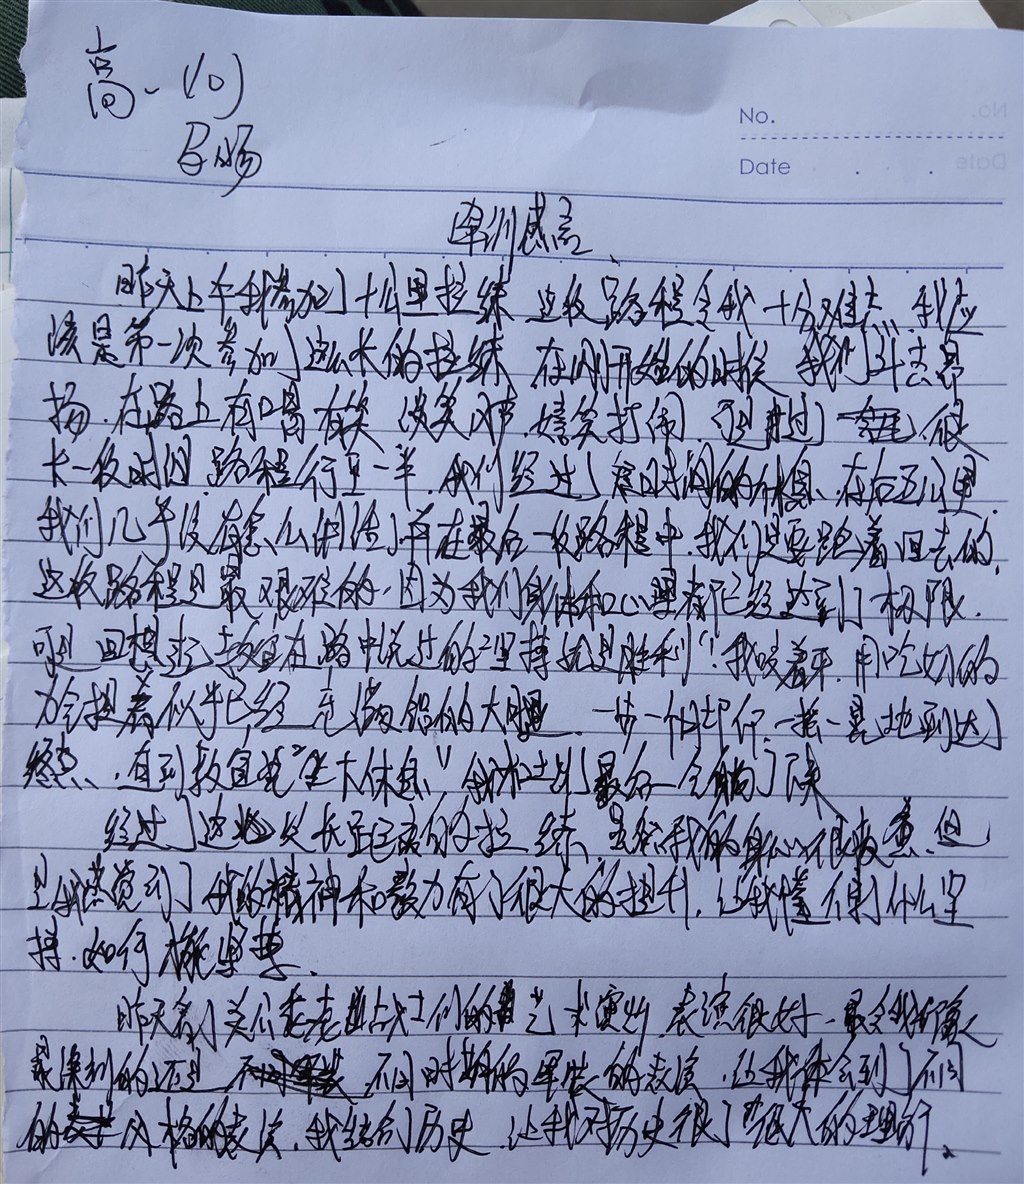 高一(10)
No.
吕畅
Date
军训感言
昨天上午我参加了十公里拉练 这段路程令我十分难忘,我应
该是第一次参加了这么长的拉练 在刚开始的时候 我们斗志昂
扬.在路上有唱有笑 谈笑风声.嬉笑打闹.可是走过了 很
长一段时间,路程行至一半.我们经过了短时间的休息.在后五公里
我们几乎没有怎么停歇了 在最后一段路程中.我们是要跑着回去的.
这段路程是最艰难的.因为我们身体和心里都已经达到了极限.
可是回想起教官在路中说过的"坚持就是胜利"!我咬着牙.用吃奶的
力气提着似乎已经 铅的大腿 一步一个脚印 一摇一晃地到达了
终点.直到教官说"坐下休息",我和士兵 最后一个躺了下来
经过了这 次长距离的 拉练,虽然我的身心很疲惫.但
是我感觉到了我的精神和毅力有了很大的提升.让我懂得 什么坚
持.如何 坚持.
昨天看了关于老 战士们的 艺术演出 表演很好.最令我印象
最深刻的还是 不同时期的军装的表演.让我体会到了不同
的 风格的表演.我结合了历史.让我对历史 了很大的理解.